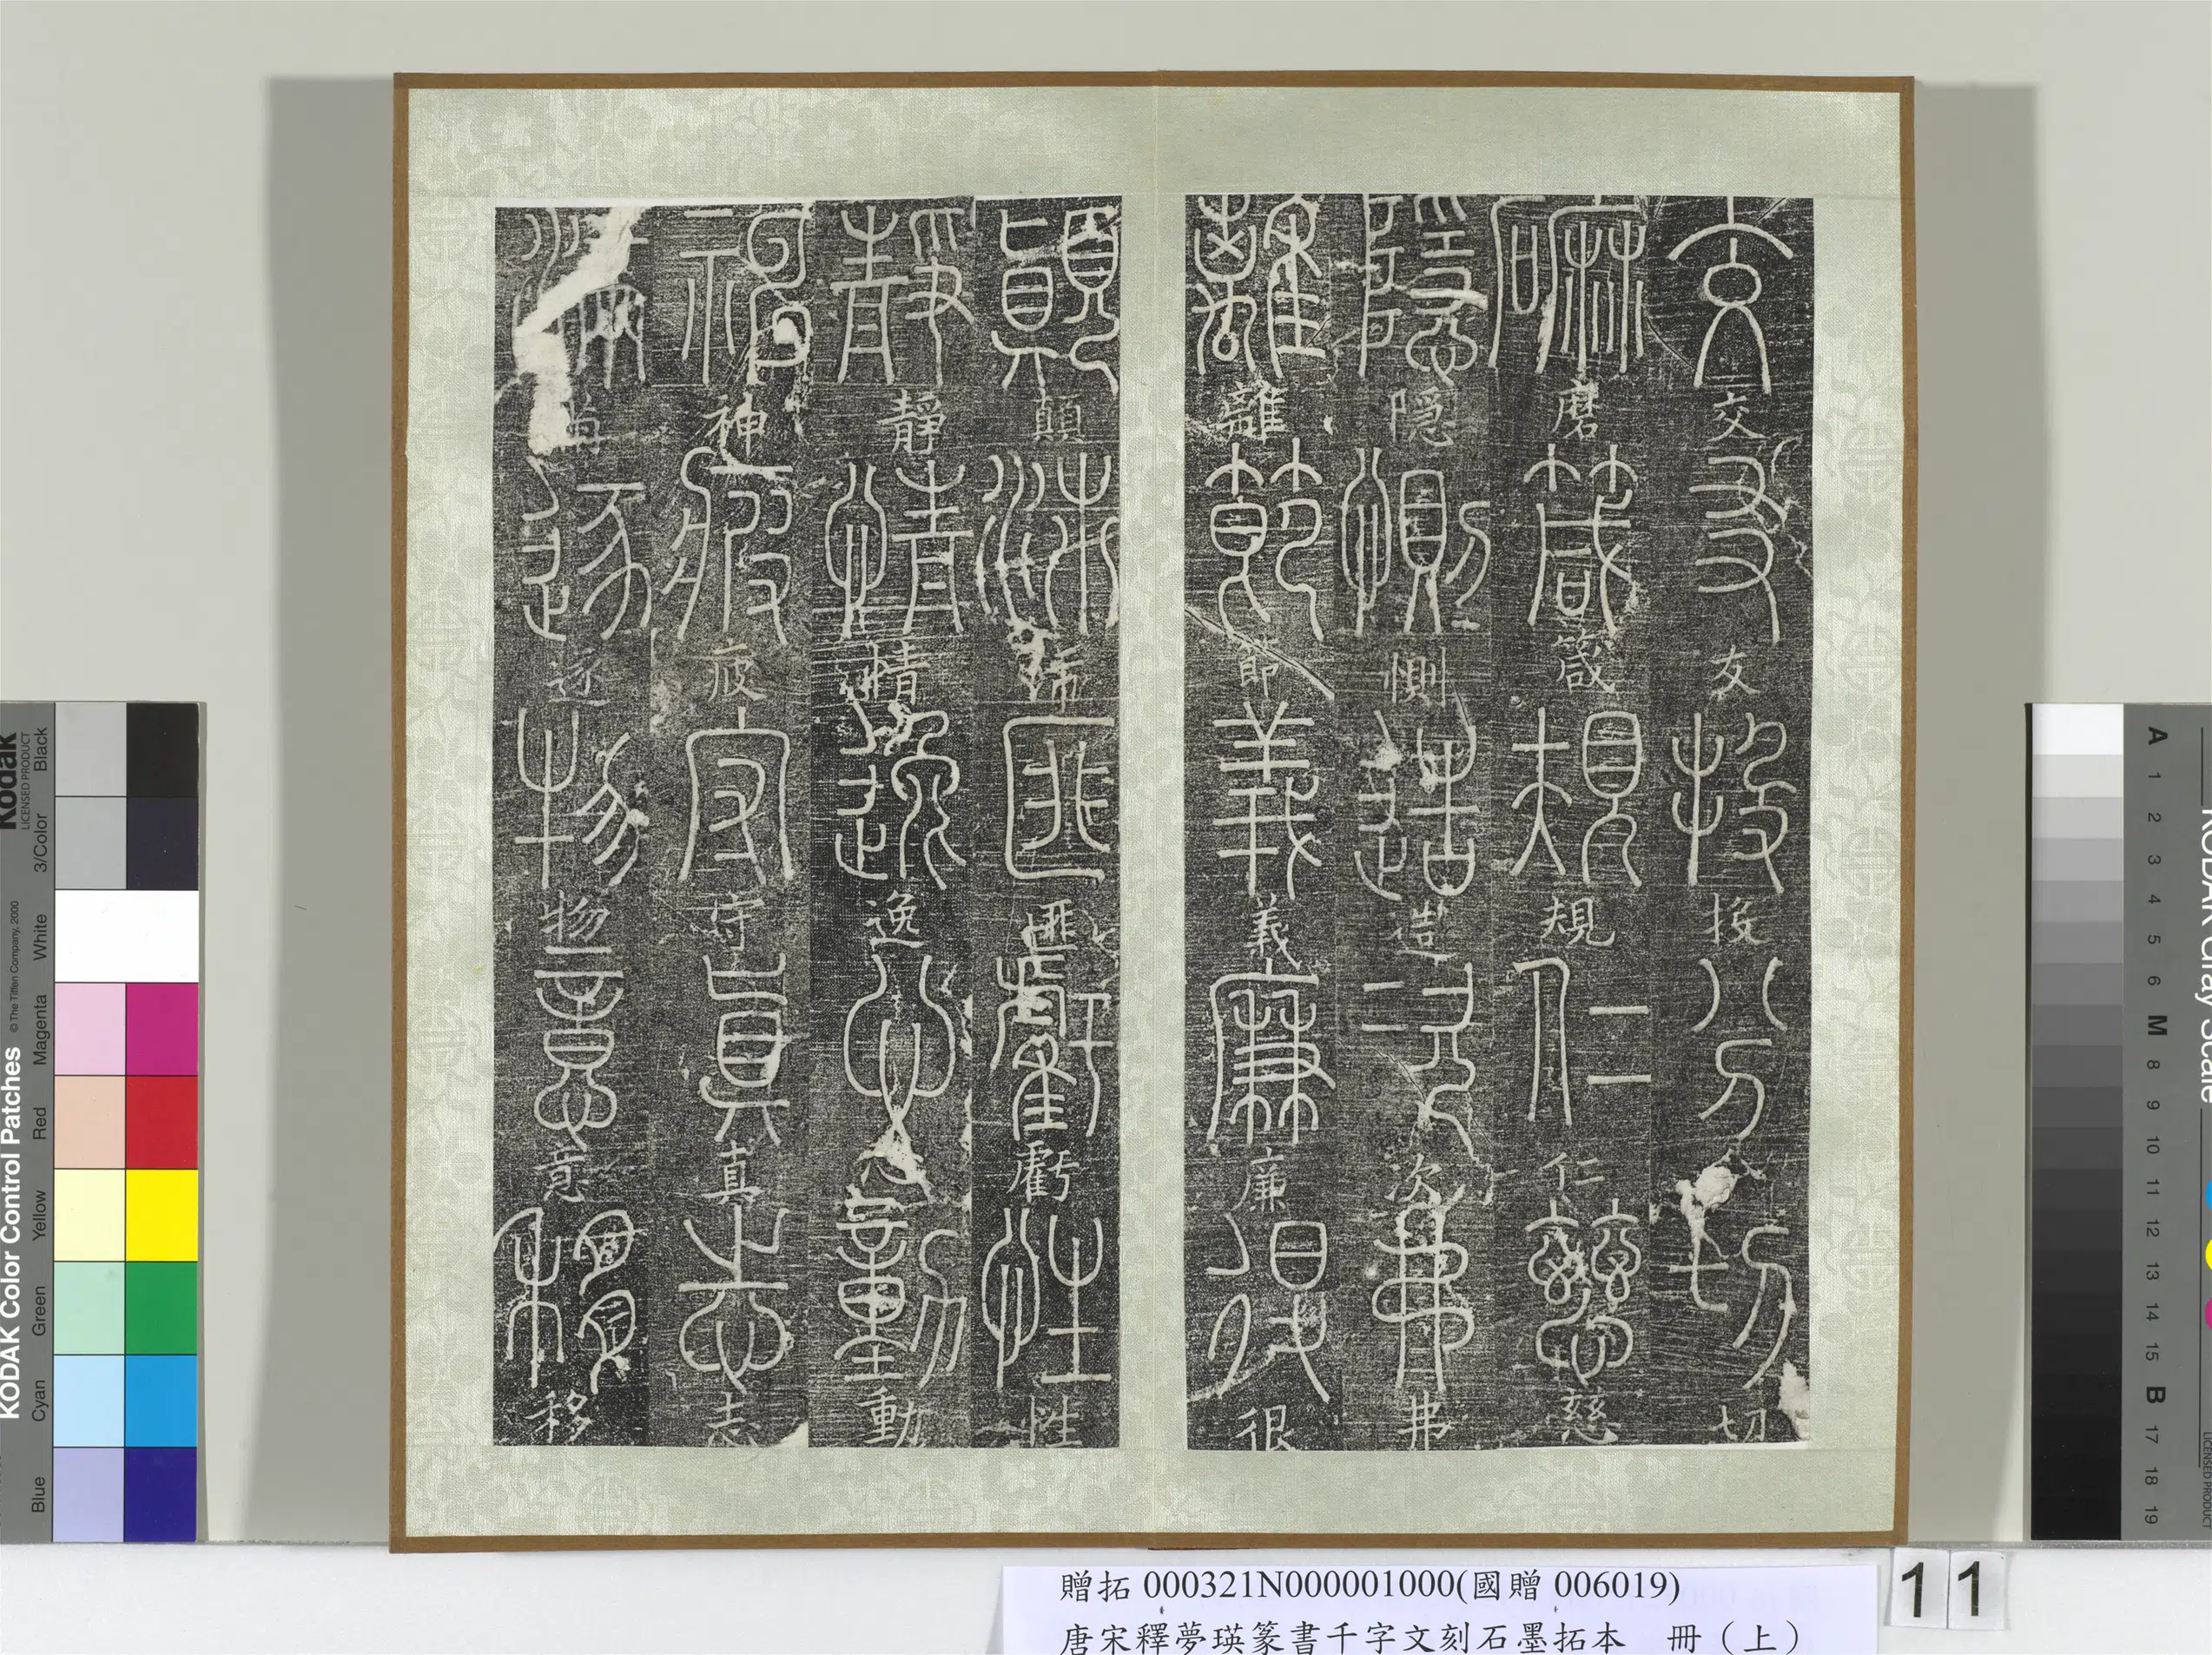 交友投分切
磨箴規仁慈
隱惻造次弗
離節義廉很
顛沛匪虧性
靜情逸心動
神疲守真志
滿逐物意移
贈拓 000321N000001000(國贈 006019)
唐宋釋夢瑛篆書千字文刻石墨拓本 冊（上）
11
KODAK Color Control Patches
© The Tiffen Company, 2000
Kodak
LICENSED PRODUCT
Blue Cyan Green Yellow Red Magenta White 3/Color Black
KODAK Gray Scale
LICENSED PRODUCT
A 1 2 3 4 5 6 M 8 9 10 11 12 13 14 15 B 17 18 19